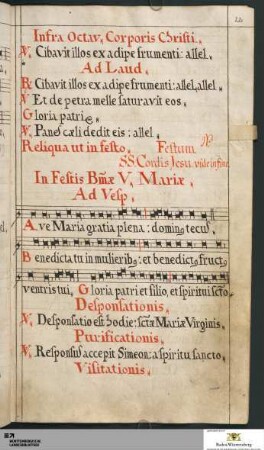 Infra Octav. Corporis Christi.
V. Cibavit illos ex adipe frumenti: allel.
Ad Laud.
R: Cibavit illos ex adipe frumenti: allel, allel.
V Et de petra melle saturavit eos.
Gloria patri.
V. Panē cæli dedit eis: allel.
Reliqua ut in festo. Festum
SS Cordis Jesu vide in fine
In Festis Bmæ V. Mariæ.
Ad Vesp.
Ave Maria gratia plena: dominꝰ tecū.
Benedicta tu in mulieribꝫ: et benedictꝰ fructꝰ
ventris tui. Gloria patri et filio, et spiritui scto.
Desponsationis.
V. Desponsatio est hodie: sctæ Mariæ Virginis.
Purificationis.
V. Responsū accepit Simeon: a spiritu sancto.
Visitationis.
Baden-Württemberg